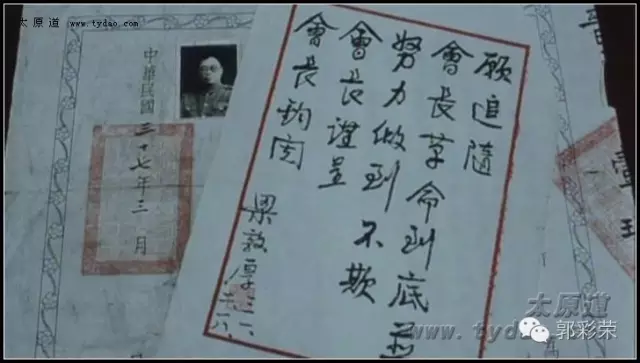 太原道 www.tydao.com
願追隨
會長革命到底並
努力做到不欺
會長謹呈
會長鈞閱
梁敦厚
中華民國三十七年三月
太原道
www.tydao
郭彩荣